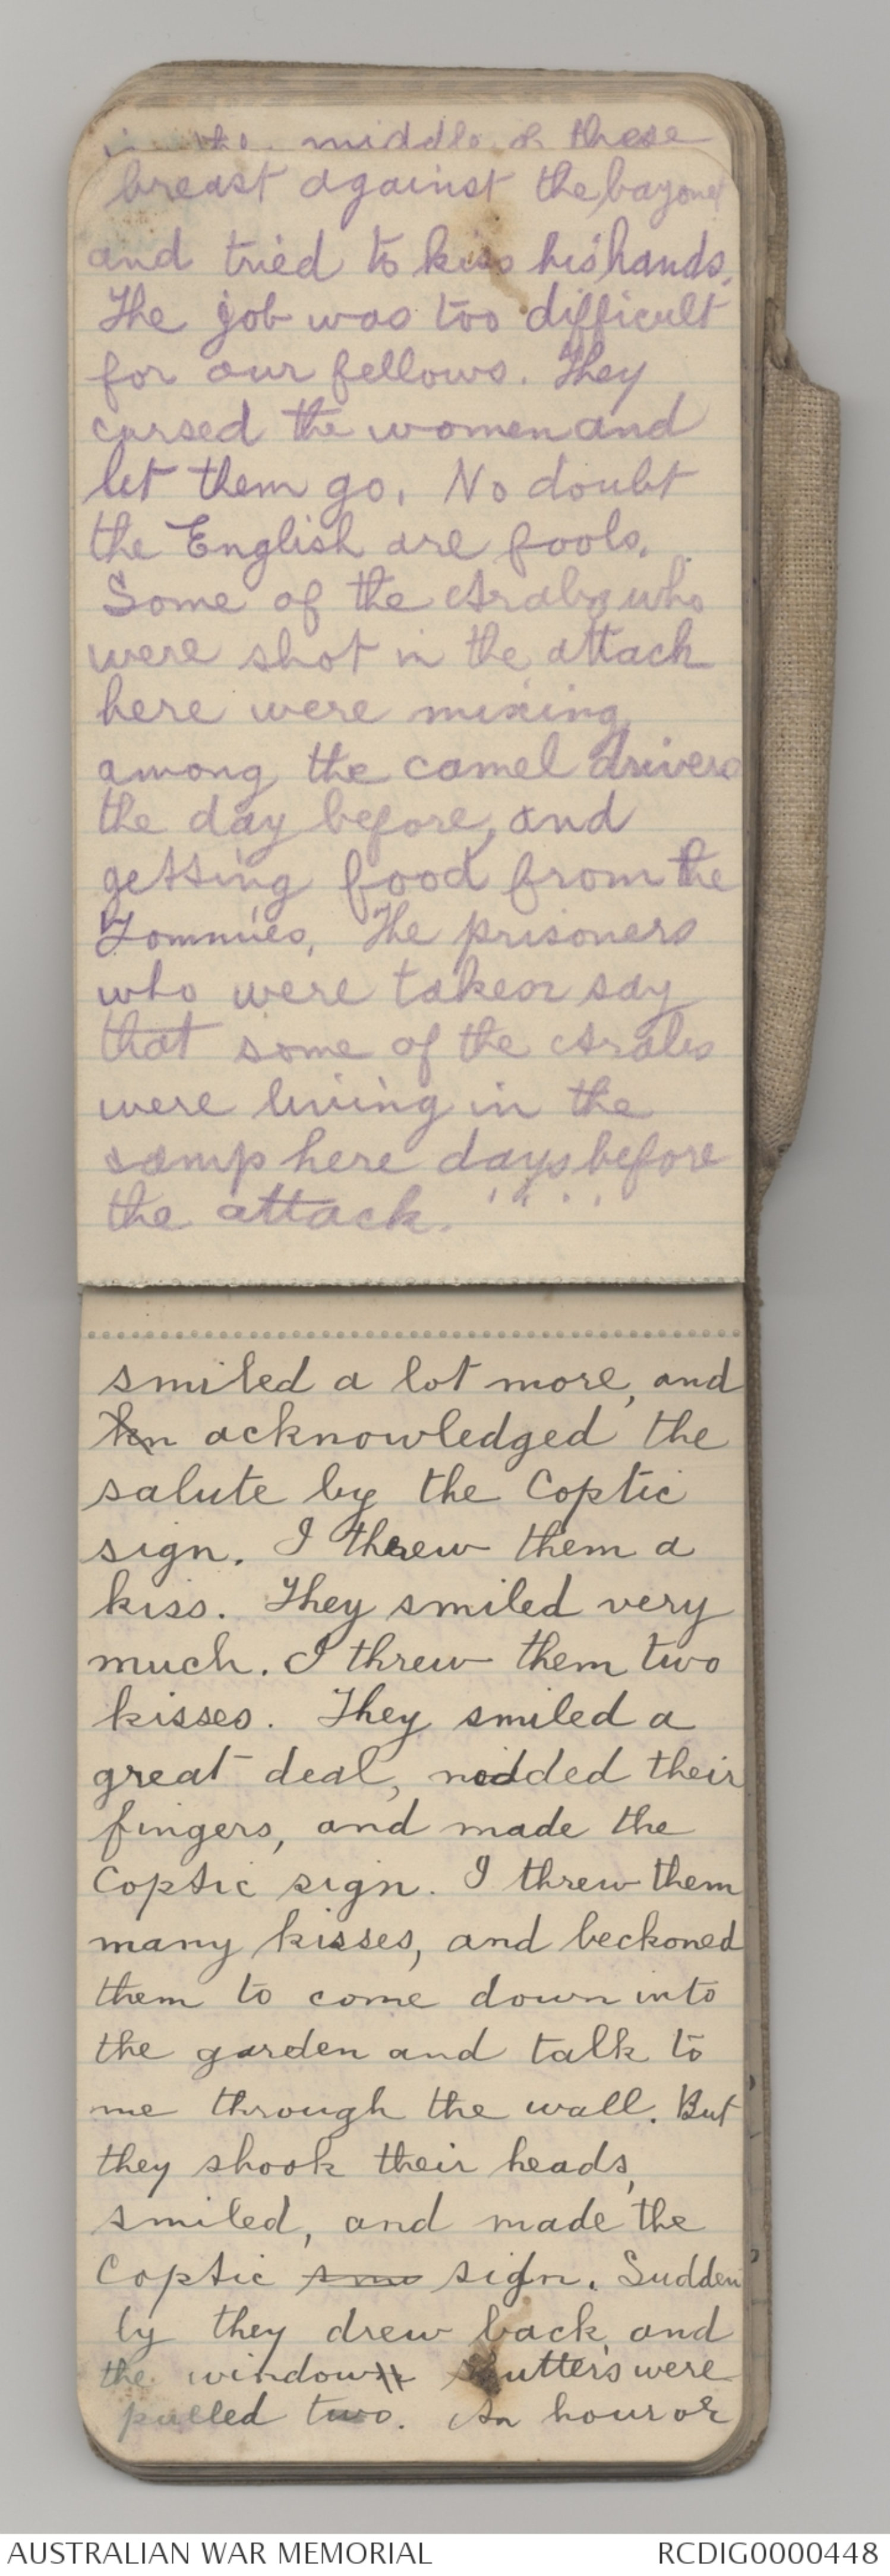 in the middle of these
breast against the bayonet
and tried to kiss his hands.
The job was too difficult
for our fellows. They
cursed the women and
let them go. No doubt
the English are fools.
Some of the Arabs who
were shot in the attack
here were mixing
among the camel drivers
the day before, and
getting food from the
Tommies. The prisoners
who were taken say
that some of the Arabs
were living in the
camp here days before
the attack.
smiled a lot more, and
acknowledged the
salute by the Coptic
sign. I threw them a
kiss. They smiled very
much. I threw them two
kisses. They smiled a
great deal, nodded their
fingers, and made the
Coptic sign. I threw them
many kisses, and beckoned
them to come down into
the garden and talk to
me through the wall. But
they shook their heads,
smiled, and made the
Coptic sign. Sudden
ly they drew back and
the window shutters were
pulled two. An hour or
AUSTRALIAN WAR MEMORIAL
RCDIG0000448